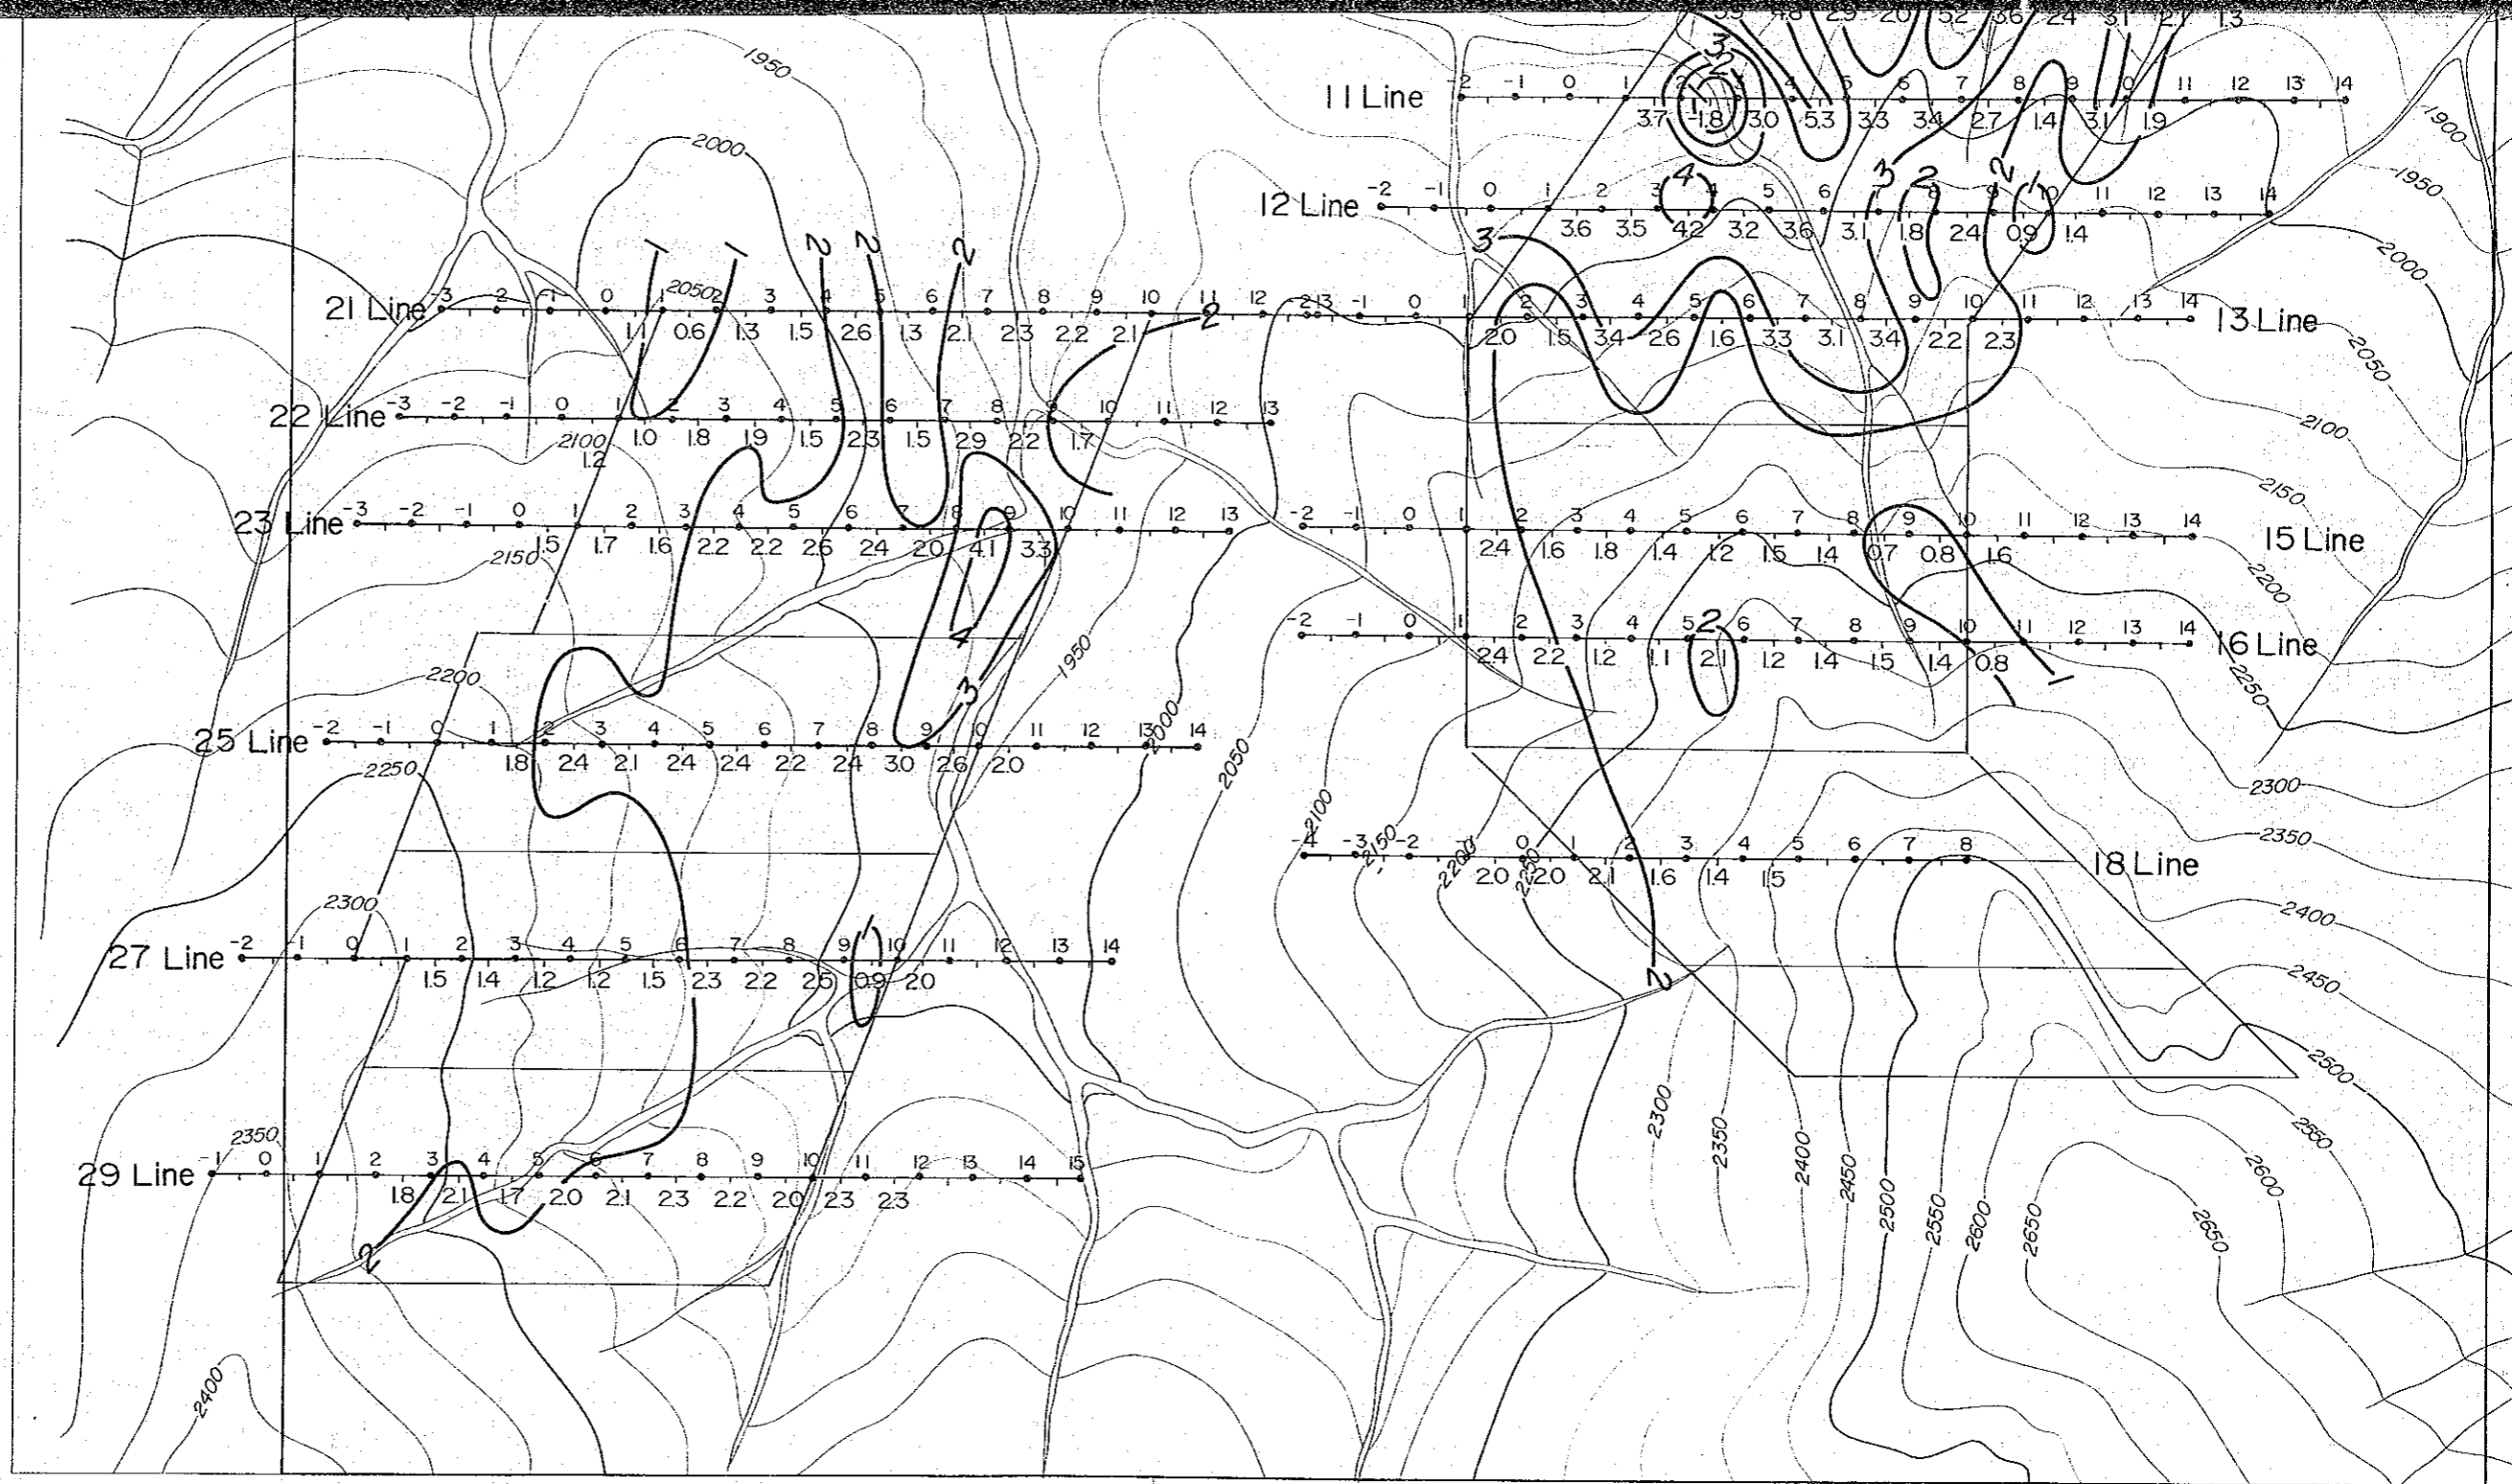 3.9 4.8 2.9 2.0 5.2 3.6 2.4 3.1 2.1 1.3
3
2
1
11 Line -2 -1 0 1 2 3 4 5 6 7 8 9 0 11 12 13 14
3.7 -1.8 3.0 5.3 3.3 3.4 2.7 1.4 3.1 1.9
4 3 2 2 1
12 Line -2 -1 0 1 2 3 4 5 6 7 8 9 10 11 12 13 14
3.6 3.5 4.2 3.2 3.6 3.1 1.8 2.4 0.9 1.4
3
-2 -1 0 1 2 3 4 5 6 7 8 9 10 11 12 13 14 13 Line
2.0 1.5 3.4 2.6 1.6 3.3 3.1 3.4 2.2 2.3
-2 -1 0 1 2 3 4 5 6 7 8 9 10 11 12 13 14
2.4 1.6 1.8 1.4 1.2 1.5 1.4 0.7 0.8 1.6 15 Line
2
-2 -1 0 1 2 3 4 5 6 7 8 9 10 11 12 13 14 16 Line
2.4 2.2 1.2 1.1 2.1 1.2 1.4 1.5 1.4 0.8
1
-4 -3 -2 -1 0 1 2 3 4 5 6 7 8 18 Line
2.0 2.0 2.1 1.6 1.4 1.5
2
1 1 2 2 2
21 Line -3 -2 -1 0 1 2 3 4 5 6 7 8 9 10 11 12 13
1.1 0.6 1.3 1.5 2.6 1.3 2.1 2.3 2.2 2.1
2
22 Line -3 -2 -1 0 1 2 3 4 5 6 7 8 9 10 11 12 13
1.0 1.8 1.9 1.5 2.3 1.5 2.9 2.2 1.7
1.2
23 Line -3 -2 -1 0 1 2 3 4 5 6 7 8 9 10 11 12 13
1.5 1.7 1.6 2.2 2.2 2.6 2.4 2.0 4.1 3.3
4
3
25 Line -2 -1 0 1 2 3 4 5 6 7 8 9 10 11 12 13 14
1.8 2.4 2.1 2.4 2.4 2.2 2.4 3.0 2.6 2.0
1
27 Line -2 -1 0 1 2 3 4 5 6 7 8 9 10 11 12 13 14
1.5 1.4 1.2 1.2 1.5 2.3 2.2 2.6 0.9 2.0
29 Line -1 0 1 2 3 4 5 6 7 8 9 10 11 12 13 14 15
1.8 2.1 1.7 2.0 2.1 2.3 2.2 2.0 2.3 2.3
2
1950
2000
2050
2100
2150
2200
2250
2300
2350
2400
1950
2000
2050
2100
2150
2200
2250
2300
2350
2400
2450
2500
2550
2600
2650
1900
1950
2000
2050
2100
2150
2200
2250
2300
2350
2400
2450
2500
2550
2600
2650